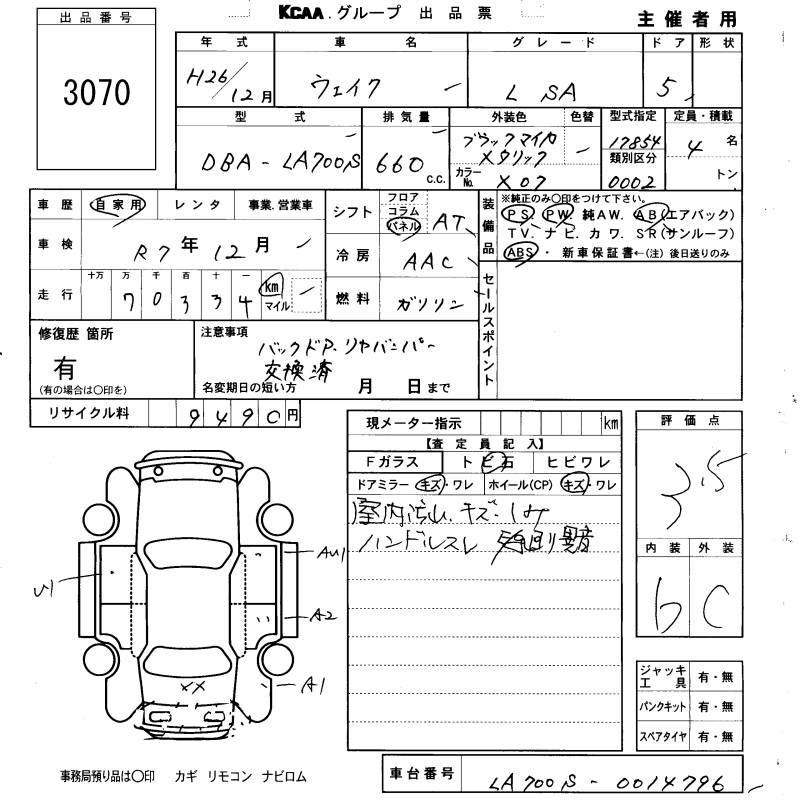 KCAA.グループ 出品票
主催者用
出品番号
3070
年式 車名 グレード ドア 形状
H26/12月 ウェイク ー L SA 5
型式 排気量 外装色 色替 型式指定 定員・積載
DBA-LA700S ー 660 ー c.c. ブラックマイカ メタリック ー 17854 4名
カラーNo. X07 類別区分 0002 トン
車歴 自家用 レンタ 事業.営業車
車検 R7年12月 ー
走行 十万 万 千 百 十 一
70334 km マイル ー
シフト フロア コラム パネル AT
冷房 AAC
燃料 ガソリン
装備品 ※純正のみ〇印をつけて下さい。
PS PW 純AW. AB(エアバック)
TV. ナビ. カワ. SR(サンルーフ)
ABS・ 新車保証書←(注) 後日送りのみ
セールスポイント
修復歴 箇所
有
(有の場合は〇印を)
注意事項
バックドア. リヤバンパー
交換済
名変期日の短い方 月 日まで
リサイクル料 9490円
現メーター指示 km
【査定員記入】
Fガラス トビ石 ヒビワレ
ドアミラー キズ・ワレ ホイール(CP) キズ・ワレ
室内汚れ. キズ・しみ
ハンドルスレ
評価点
3.5
内装 外装
b C
U1
AU1
A2
A1
XX
ジャッキ工具 有・無
パンクキット 有・無
スペアタイヤ 有・無
事務局預り品は〇印 カギ リモコン ナビロム
車台番号 LA700S-0014796